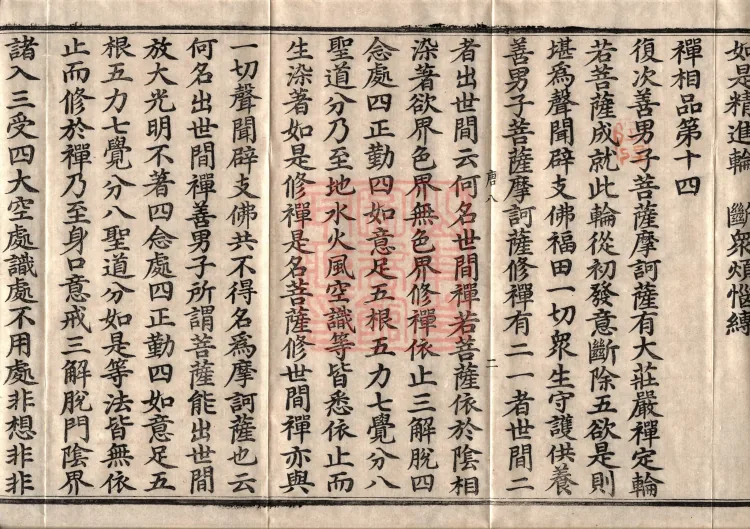 如是精進輪　斷衆煩惱縛
禪相品第十四
復次善男子菩薩摩訶薩有大莊嚴禪定輪
若菩薩成就此輪從初發意斷除五欲是則
堪爲聲聞辟支佛福田一切衆生守護供養
善男子菩薩摩訶薩修禪有二一者世間二
唐八
二
者出世間云何名世間禪若菩薩依於陰相
染著欲界色界無色界修禪依止三解脫四
念處四正勤四如意足五根五力七覺分八
聖道分乃至地水火風空識等皆悉依止而
生染著如是修禪是名菩薩修世間禪亦與
一切聲聞辟支佛共不得名爲摩訶薩也云
何名出世間禪善男子所謂菩薩能出世間
放大光明不著四念處四正勤四如意足五
根五力七覺分八聖道分如是等法皆無依
止而修於禪乃至身口意戒三解脫門陰界
諸入三受四大空處識處不用處非想非非